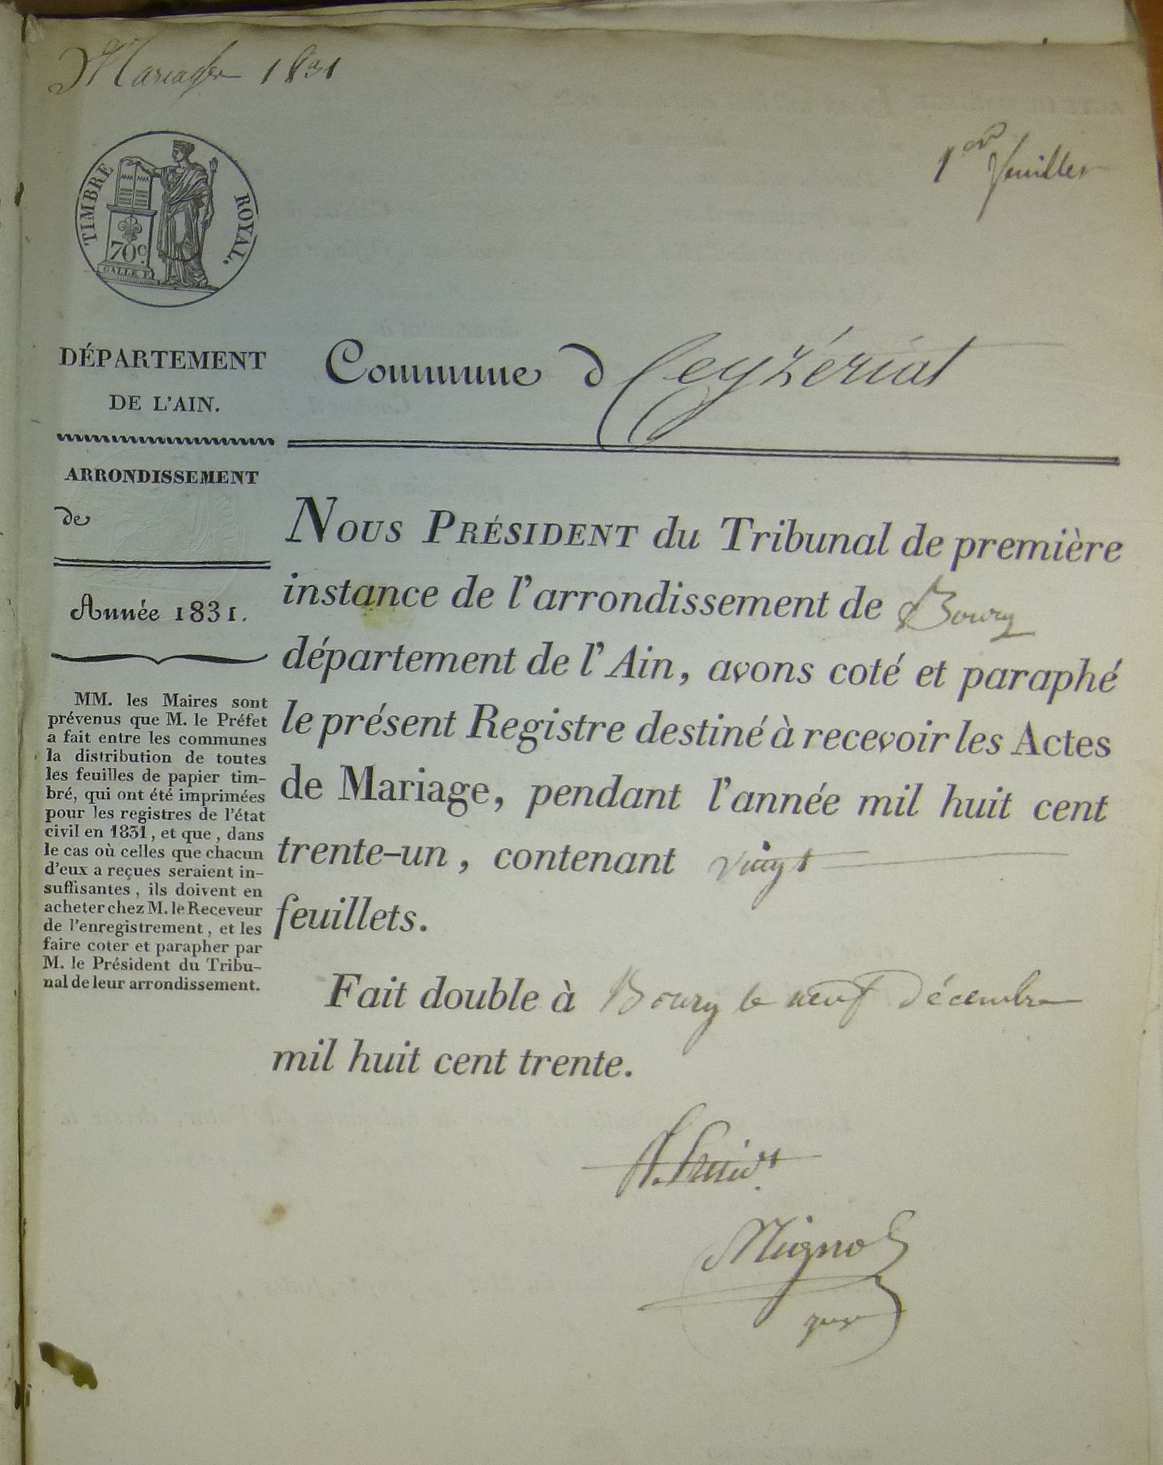 Mariages 1831
1er feuillet
TIMBRE ROYAL.
70c
DÉPARTEMENT
DE L'AIN.
Commune d Ceyzériat
ARRONDISSEMENT
de
Année 1831.
MM. les Maires sont
prévenus que M. le Préfet
a fait entre les communes
la distribution de toutes
les feuilles de papier tim-
bré, qui ont été imprimées
pour les registres de l'état
civil en 1831, et que, dans
le cas où celles que chacun
d'eux a reçues seraient in-
suffisantes, ils doivent en
acheter chez M. le Receveur
de l'enregistrement, et les
faire coter et parapher par
M. le Président du Tribu-
nal de leur arrondissement.
NOUS PRÉSIDENT du Tribunal de première
instance de l'arrondissement de Bourg
département de l'Ain, avons coté et paraphé
le présent Registre destiné à recevoir les Actes
de Mariage, pendant l'année mil huit cent
trente-un, contenant vingt
feuillets.
Fait double à Bourg le neuf Décembre
mil huit cent trente.